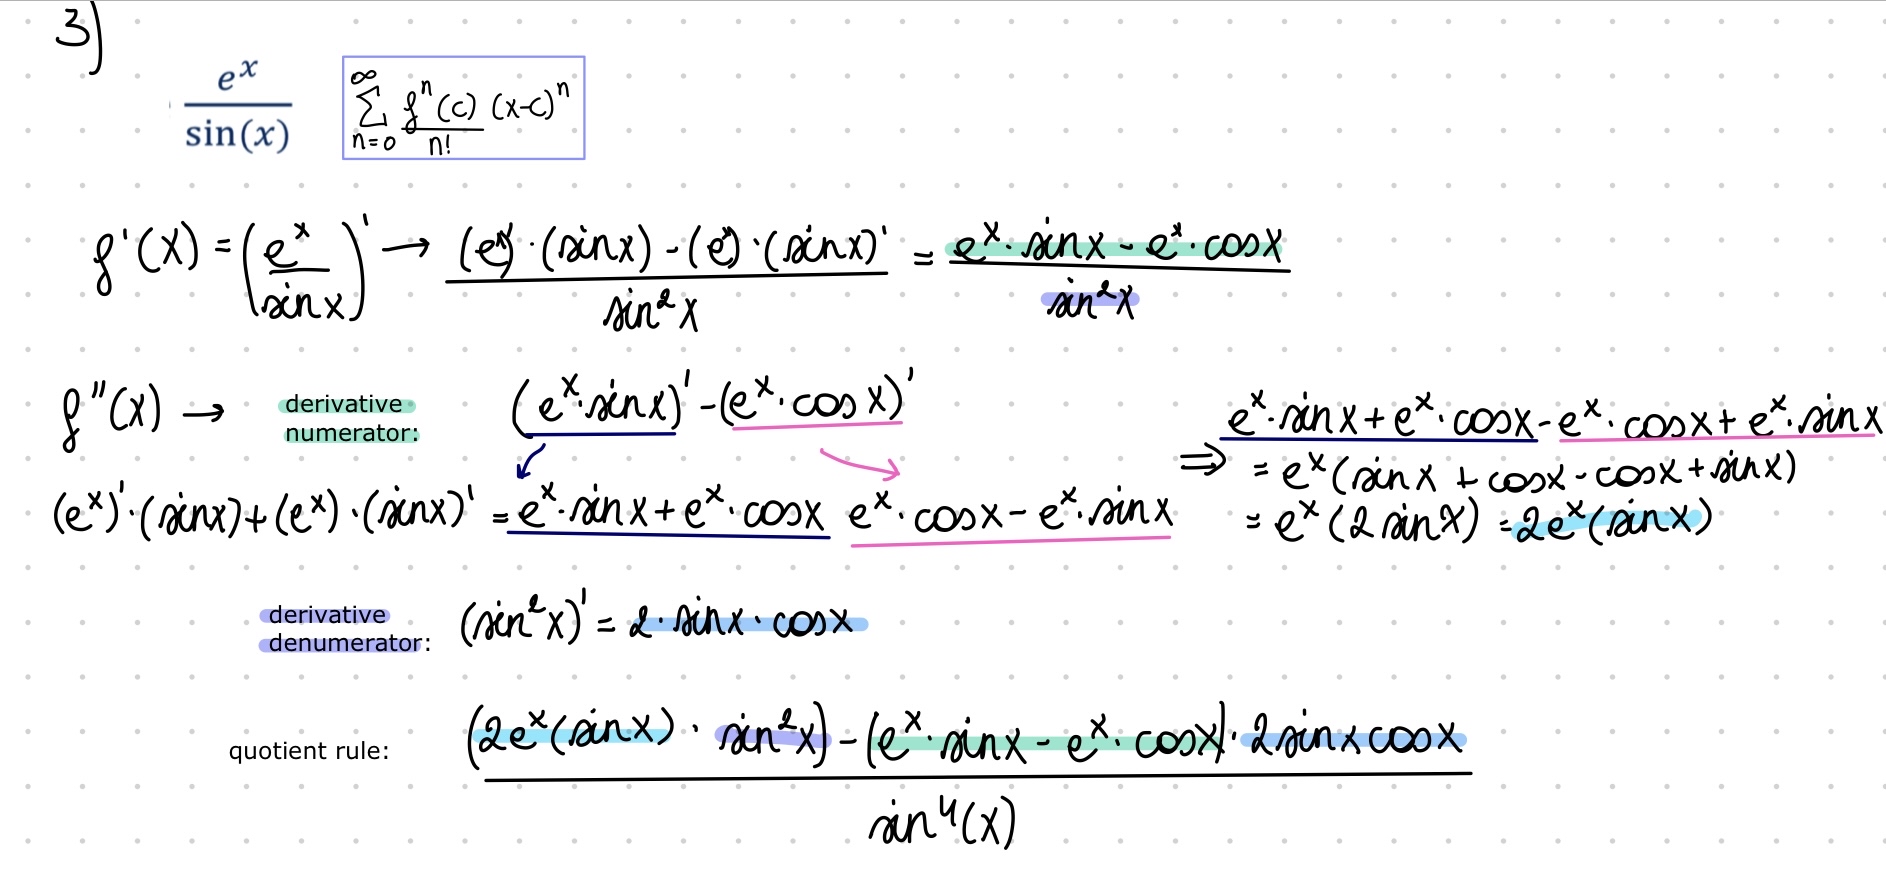 3)
e^x / sin(x)
∞ Σ n=0 f^n(c) / n! (x-c)^n
f'(x) = (e^x / sinx)' → (e^x)' · (sinx) - (e^x) · (sinx)' / sin²x = e^x · sinx - e^x · cosx / sin²x
f''(x) → derivative numerator: (e^x · sinx)' - (e^x · cosx)'
(e^x)' · (sinx) + (e^x) · (sinx)' = e^x · sinx + e^x · cosx e^x · cosx - e^x · sinx
⇒ e^x · sinx + e^x · cosx - e^x · cosx + e^x · sinx
= e^x (sinx + cosx - cosx + sinx)
= e^x (2 sinx) = 2e^x (sinx)
derivative denumerator: (sin²x)' = 2 · sinx · cosx
quotient rule: (2e^x (sinx) · sin²x) - (e^x · sinx - e^x · cosx) · 2sinxcosx / sin⁴(x)